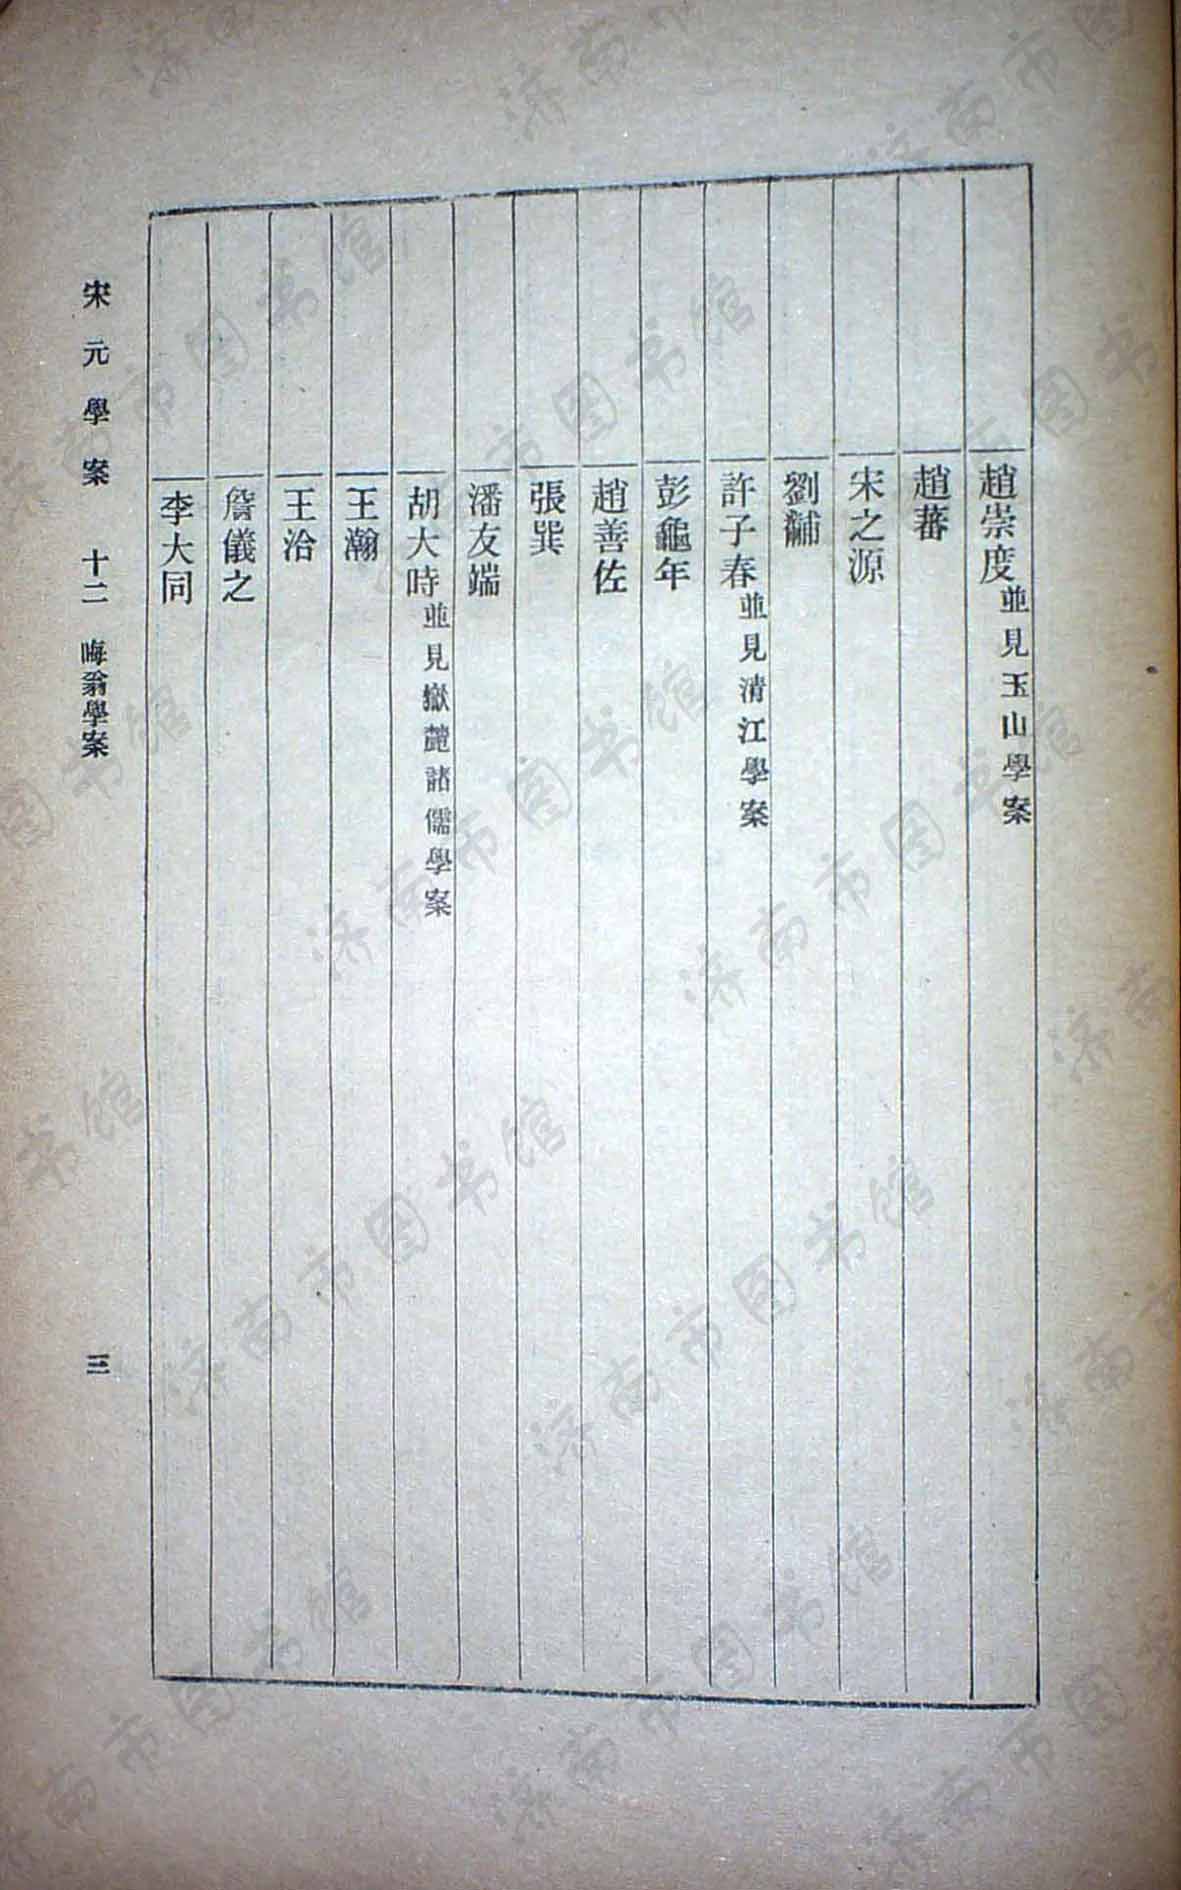 趙崇度並見玉山學案
趙蕃
宋之源
劉黼
許子春並見清江學案
彭龜年
趙善佐
張巽
潘友端
胡大時並見嶽麓諸儒學案
王瀚
王洽
詹儀之
李大同
宋元學案 十二 晦翁學案 三
济南市图书馆